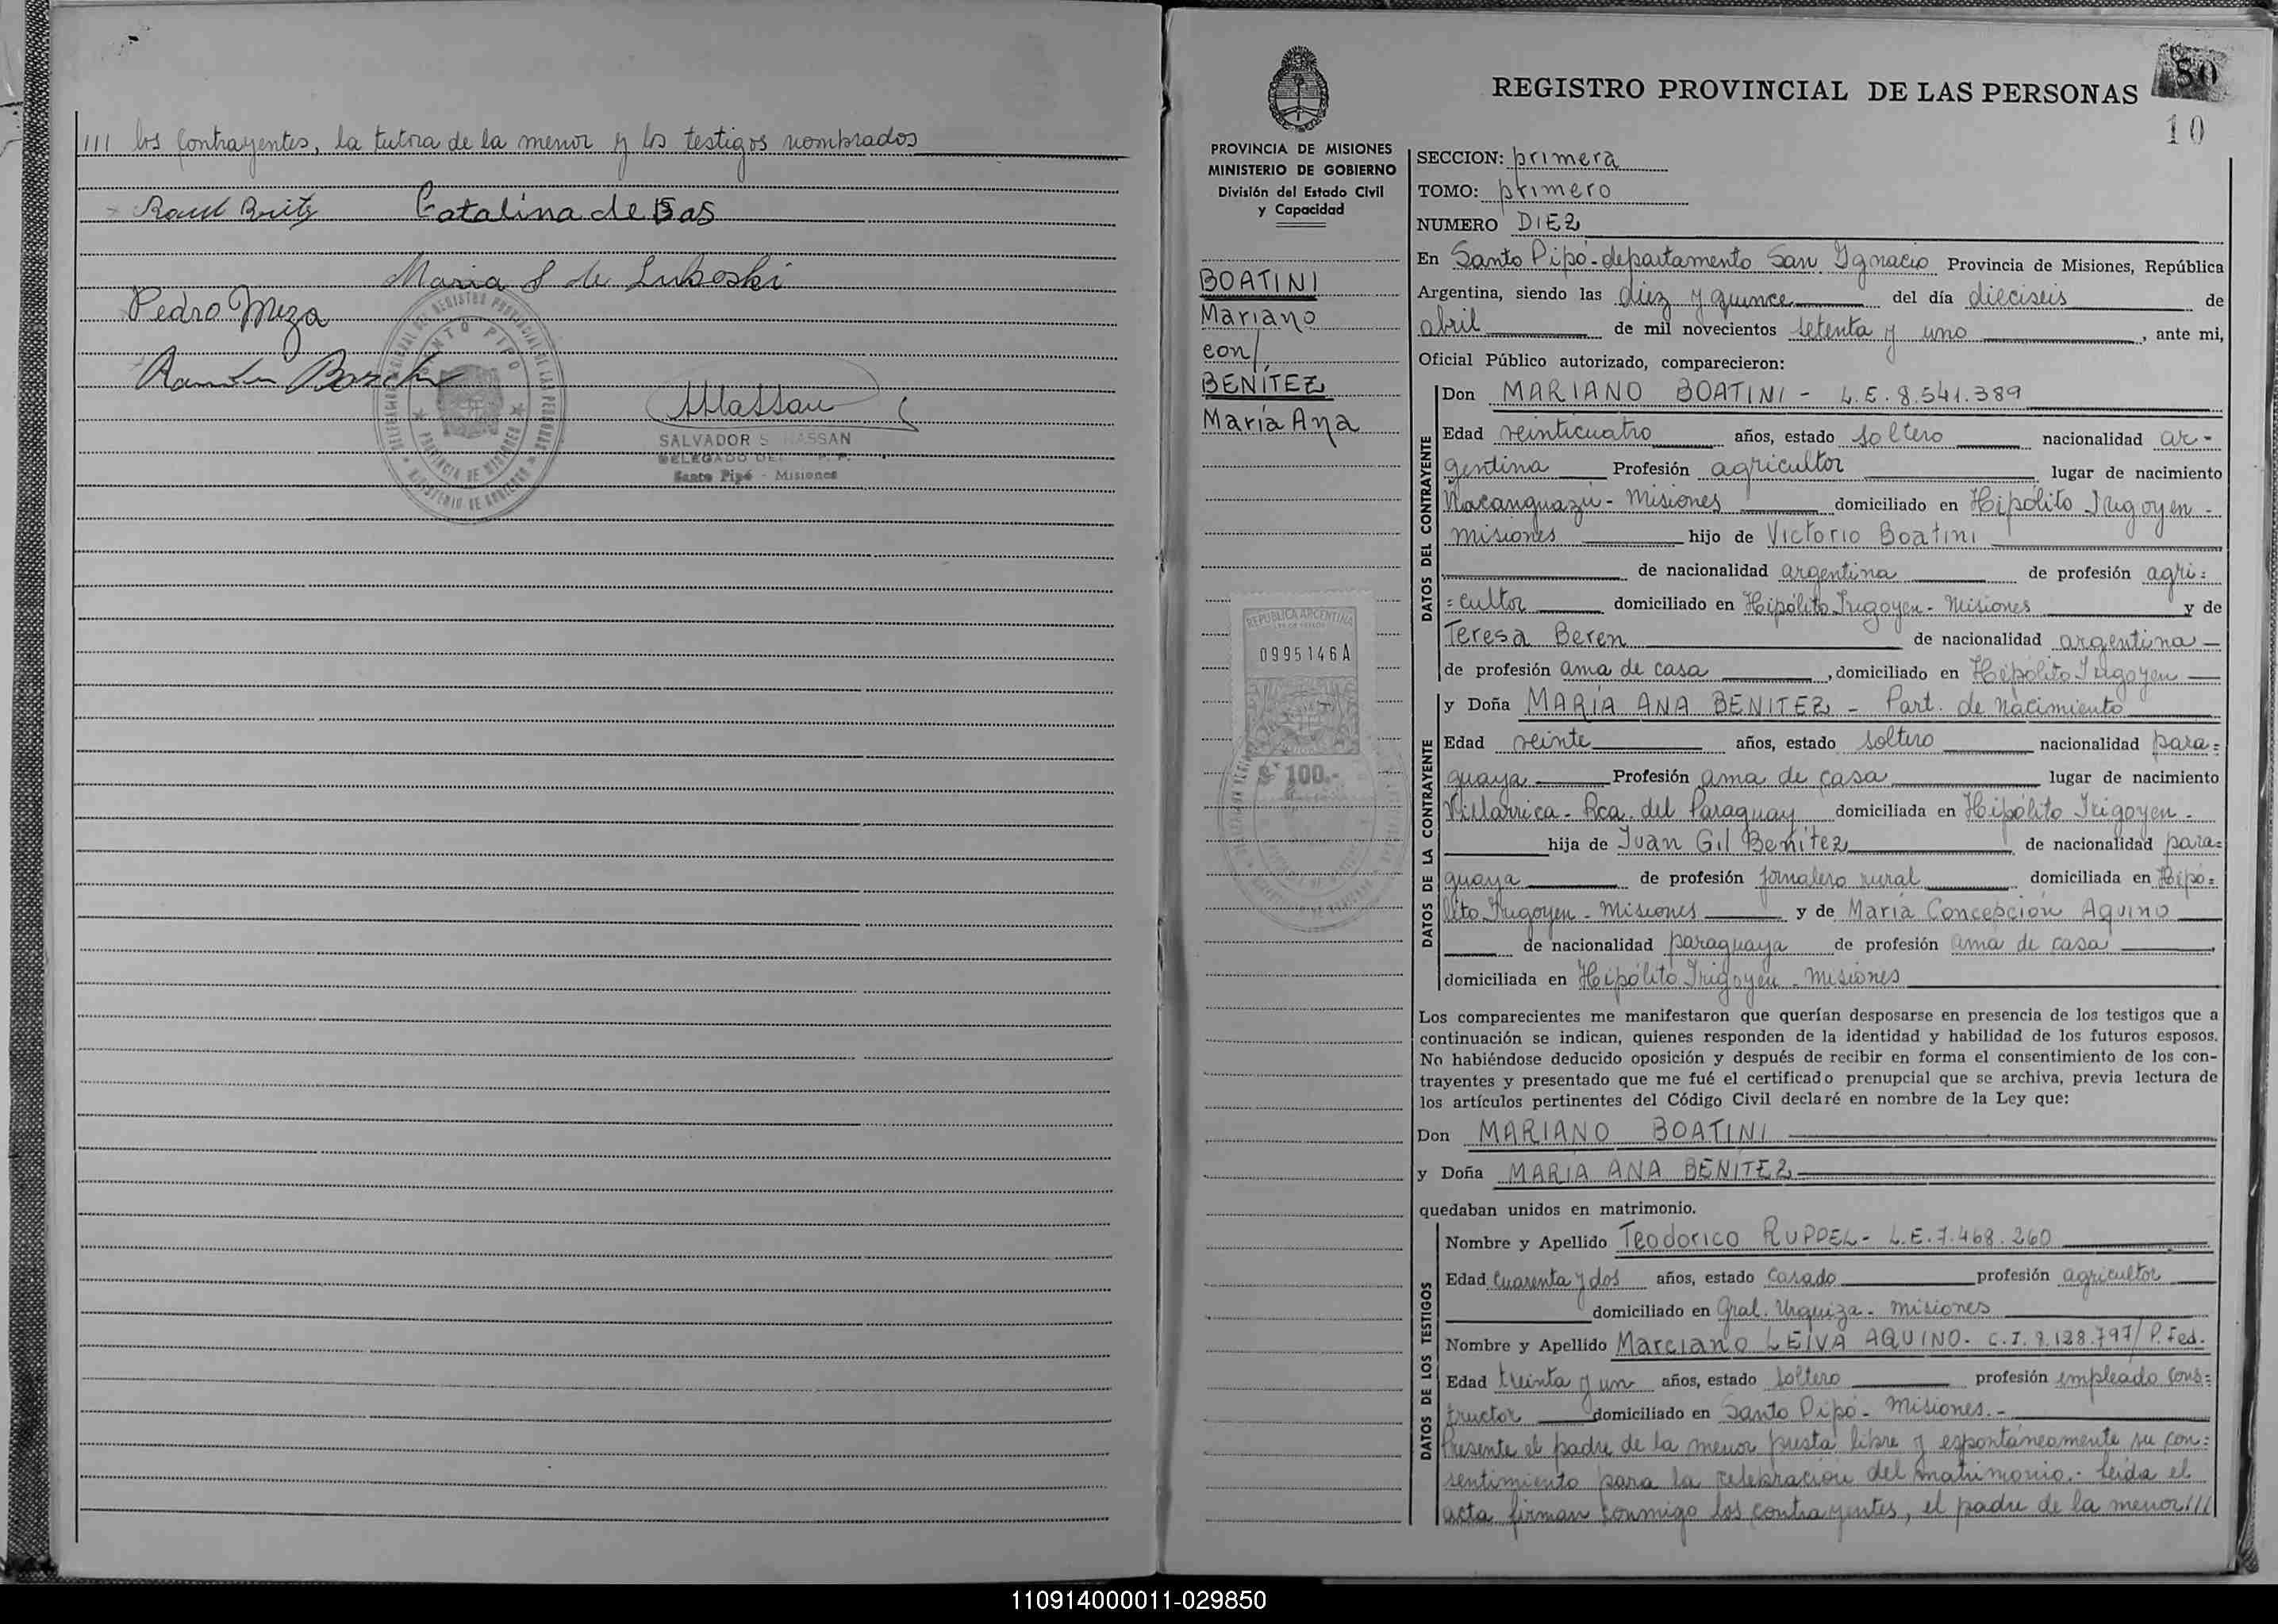 /// los contrayentes, la tutora de la menor y los testigos nombrados
Raul Britz Catalina de Bas
Maria S de Luboski
Pedro Meza
Ramón
SALVADOR S. HASSAN
DELEGADO DEL R. P. P.
Santo Pipó - Misiones
DELEGACION REGIONAL DEL REGISTRO PROVINCIAL DE LAS PERSONAS
SANTO PIPO
PROVINCIA DE MISIONES
MINISTERIO DE GOBIERNO
REGISTRO PROVINCIAL DE LAS PERSONAS
80
10
PROVINCIA DE MISIONES
MINISTERIO DE GOBIERNO
División del Estado Civil
y Capacidad
BOATINI
Mariano
con/
BENÍTEZ
María Ana
REPUBLICA ARGENTINA
0995146A
$ 100.-
SECCION: primera
TOMO: primero
NUMERO DIEZ
En Santo Pipó - departamento San Ignacio Provincia de Misiones, República
Argentina, siendo las diez y quince del día dieciseis de
abril de mil novecientos setenta y uno, ante mi,
Oficial Público autorizado, comparecieron:
DATOS DEL CONTRAYENTE
Don MARIANO BOATINI - L.E. 8.541.389
Edad veinticuatro años, estado soltero nacionalidad ar-
gentina Profesión agricultor lugar de nacimiento
Ñacanguazú - Misiones domiciliado en Hipólito Irigoyen -
Misiones hijo de Victorio Boatini
de nacionalidad argentina de profesión agri=
=cultor domiciliado en Hipólito Irigoyen - Misiones y de
Teresa Beren de nacionalidad argentina -
de profesión ama de casa, domiciliado en Hipólito Irigoyen
DATOS DE LA CONTRAYENTE
y Doña MARÍA ANA BENITEZ - Part. de Nacimiento
Edad veinte años, estado soltero nacionalidad para=
guaya Profesión ama de casa lugar de nacimiento
Villarrica - Rca. del Paraguay domiciliada en Hipólito Irigoyen -
hija de Juan Gil Benítez de nacionalidad para=
guaya de profesión jornalero rural domiciliada en Hipó=
lito Irigoyen - Misiones y de María Concepción Aquino
de nacionalidad paraguaya de profesión ama de casa
domiciliada en Hipólito Irigoyen - Misiones
Los comparecientes me manifestaron que querían desposarse en presencia de los testigos que a
continuación se indican, quienes responden de la identidad y habilidad de los futuros esposos.
No habiéndose deducido oposición y después de recibir en forma el consentimiento de los con-
trayentes y presentado que me fué el certificado prenupcial que se archiva, previa lectura de
los artículos pertinentes del Código Civil declaré en nombre de la Ley que:
Don MARIANO BOATINI
y Doña MARÍA ANA BENÍTEZ
quedaban unidos en matrimonio.
DATOS DE LOS TESTIGOS
Nombre y Apellido Teodorico RUPPEL - L.E. 7.468.260
Edad cuarenta y dos años, estado casado profesión agricultor
domiciliado en Gral. Urquiza - Misiones
Nombre y Apellido Marciano LEIVA AQUINO - C.I. 8.128.797/ P. Fed.
Edad treinta y un años, estado soltero profesión empleado cons=
tructor domiciliado en Santo Pipó - Misiones.-
Presente el padre de la menor presta libre y espontáneamente su con=
sentimiento para la celebración del matrimonio.- Leída el
acta firman conmigo los contrayentes, el padre de la menor///
110914000011-029850